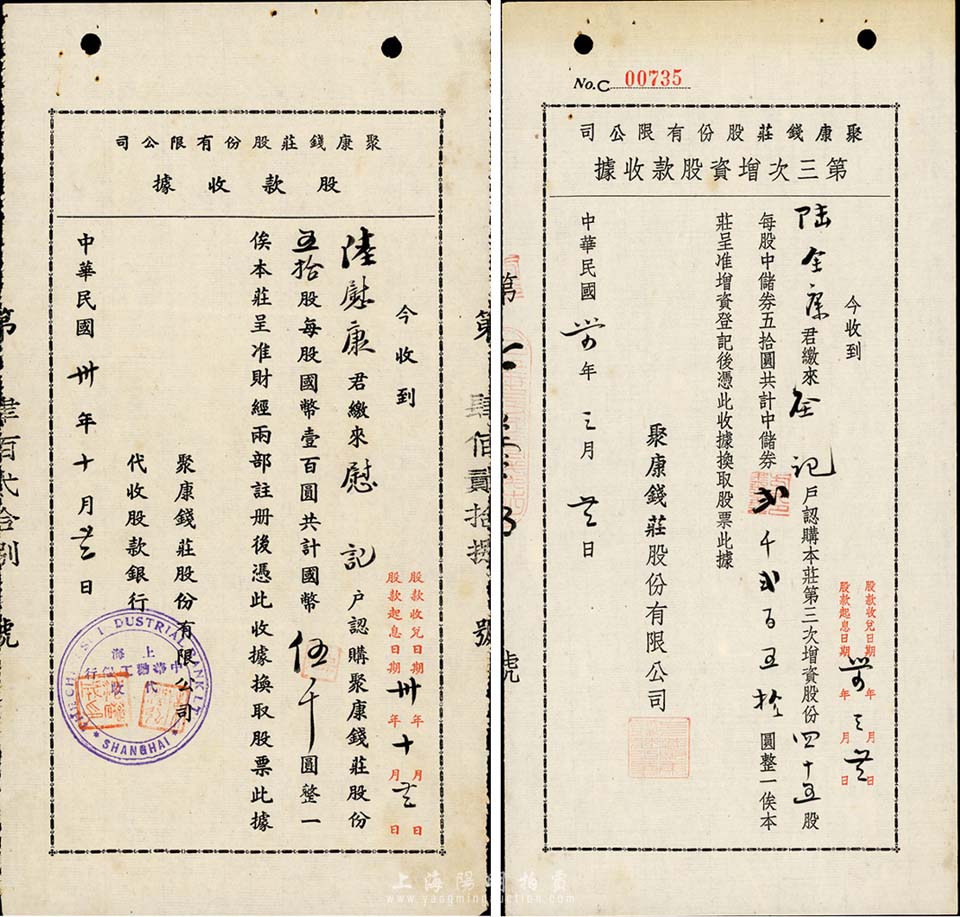 聚康錢莊股份有限公司
股款收據
今收到
陸慰康君繳來慰記戶認購聚康錢莊股份
五拾股每股國幣壹百圓共計國幣伍千圓整一
俟本莊呈准財經兩部註册後憑此收據換取股票此據
聚康錢莊股份有限公司
代收股款銀行
中華民國卅年十月 日
股款收兌日期 年 月 日
股款起息日期卅年十月 日
第肆佰貳拾捌號
第肆百弍拾捌號
THE CHINESE INDUSTRIAL BANK LTD
上海
中華勸工銀行
代收
SHANGHAI
No. C 00735
聚康錢莊股份有限公司
第三次增資股款收據
今收到
陆全康君繳來全記戶認購本莊第三次增資股份四十五股
每股中儲券五拾圓共計中儲券弍千弍百五拾圓整一俟本
莊呈准增資登記後憑此收據換取股票此據
聚康錢莊股份有限公司
中華民國 年三月 日
股款收兌日期 年 月 日
股款起息日期 年三月 日
第 號
上海陽明拍賣
www.yangmingauction.com